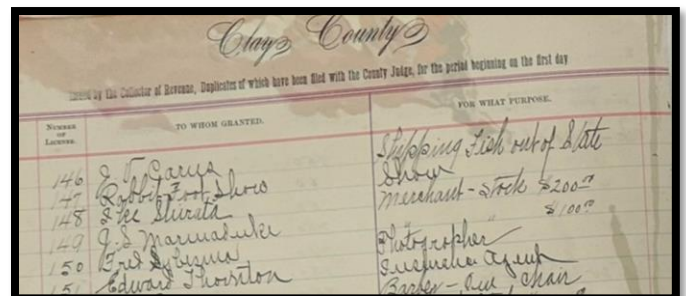 Clay County
Issued by the Collector of Revenue, Duplicates of which have been filed with the County Judge, for the period beginning on the first day
NUMBER OF LICENSE. TO WHOM GRANTED. FOR WHAT PURPOSE.
146 J T Shipping Fish out of State
147 Rabbit Foot Show Show
148 Merchant - Stock $200.00
149 J. S. Marmaduke " $100.00
150 Fred Photographer
151 Edward Thornton Insurance Agent
Barber - One Chair